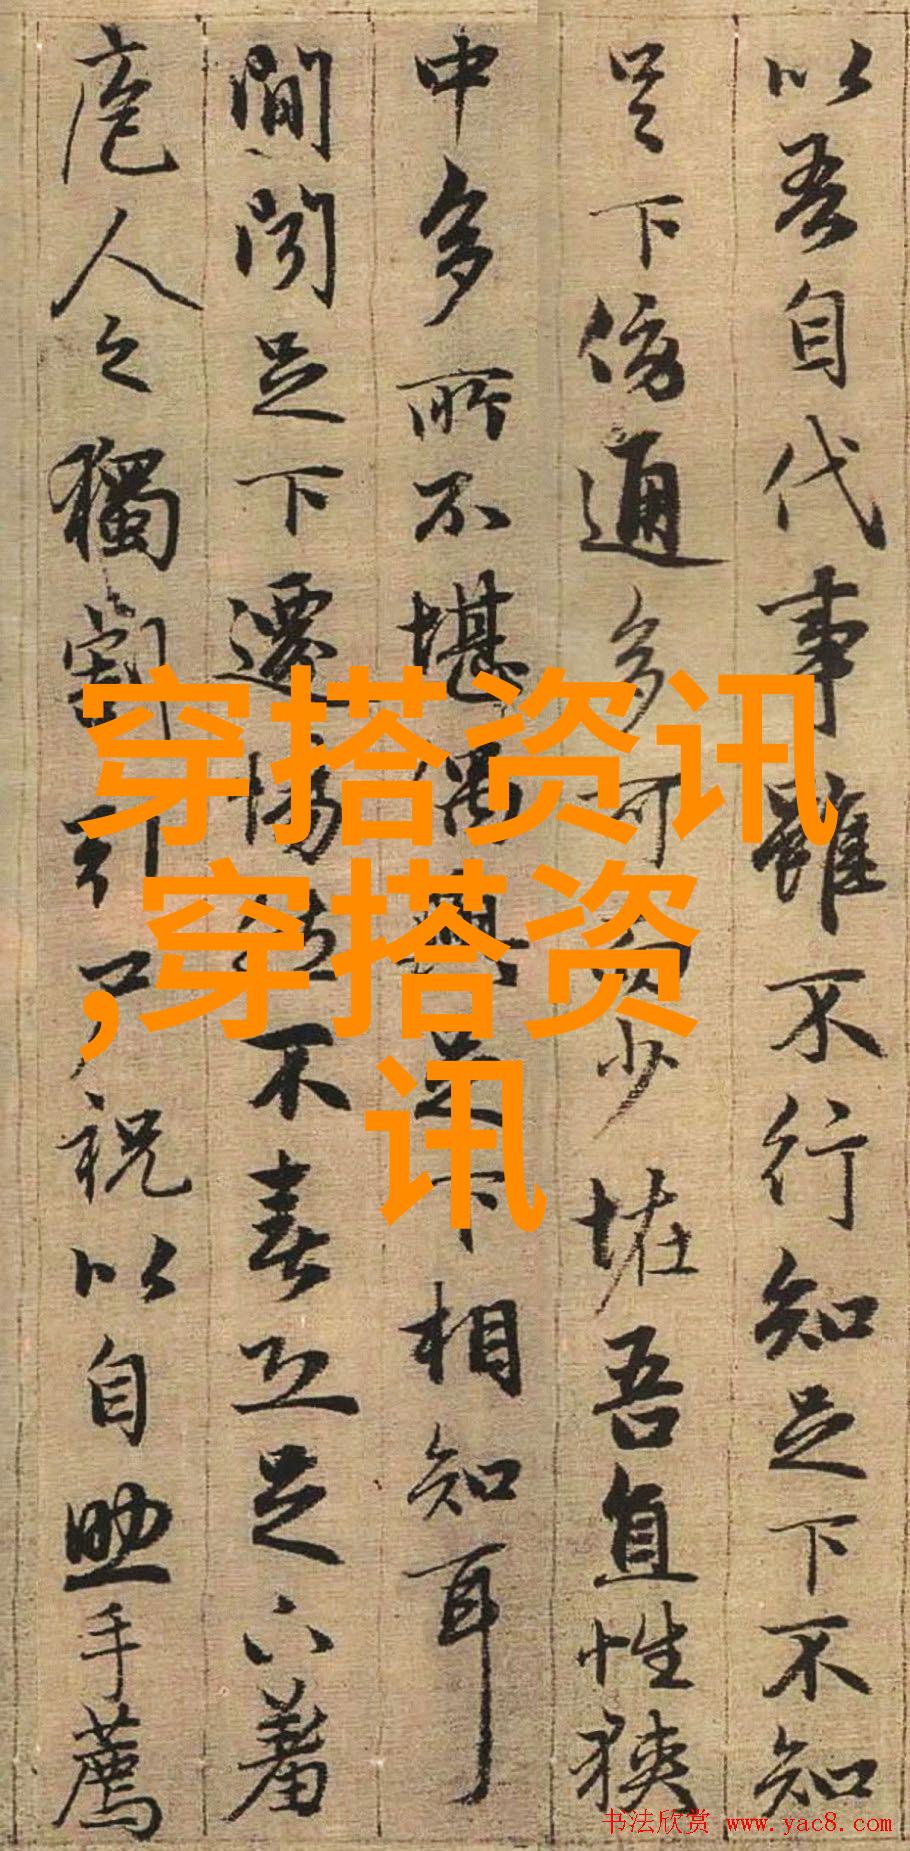 以吾自代事雖不行知足下不知
足下傍通多可而少恠吾直性狹
中多所不堪偶與足下相知耳
間聞足下遷惕然不喜恐足下羞
庖人之獨割引尸祝以自助手薦
穿搭资讯
,穿搭资
讯
书法欣赏 www.yac8.com